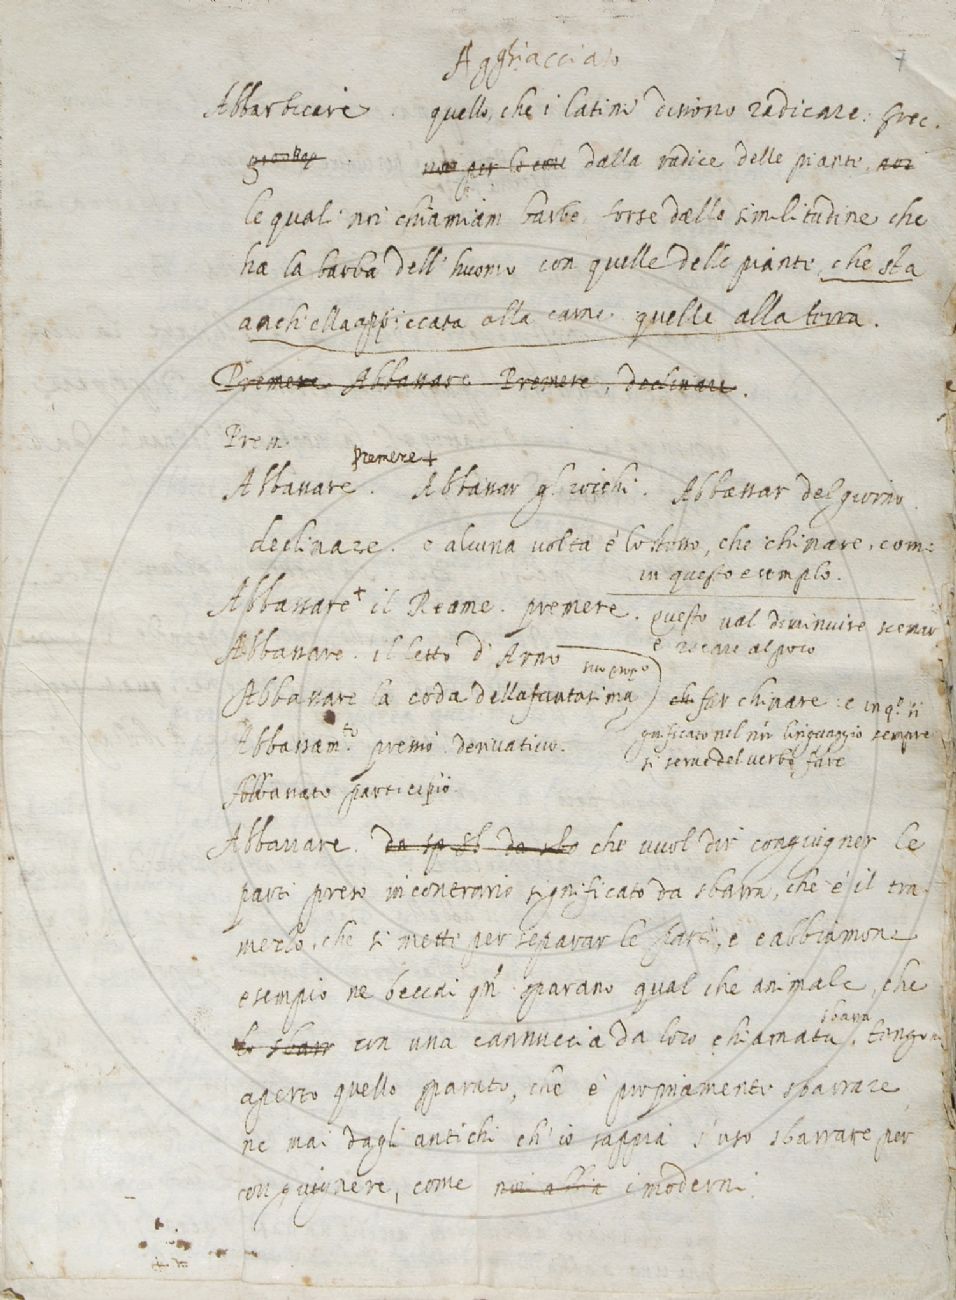 Agghiacciato
7
Abbarbicare. quello, che i latini dissono radicare: grec.
dalla radice delle piante,
le quali noi chiamiam barbe forse dalla similitudine che
ha la barba dell'huomo con quelle delle piante, che sta
anch'ella appiccata alla carne quelle alla terra.
Premere Abbassare Premere, declinare.
Prem.
premere +
Abbassare. Abbassar gl'occhi. Abbassar del giorno
declinare. e alcuna volta è lo stesso, che chinare, come
in questo esemplo.
Abbassare + il Reame. premere. questo val diminuire scemar
e recare al poco
Abbassare. il letto d'Arno
Abbassare la coda della fantasima) far chinare: e in q.º si
gnificato nel nrõ linguaggio sempre
si serve del verbo fare
Abbassam.to premõ derivativo.
Abbassato participio.
Abbarrare. che vuol dir congiugner le
parti preso in contrario significato da sbarra, che è il tra
merzo, che si mette per separar le parti, e e abbiamone
esempio ne beccai qñ sparano qual che animale, che
sbarra
lo sbarr con una cannuccia da loro chiamata. tengon
aperto quello sparato, che è propriamente sbarrare
ne mai dagli antichi ch'io sappia s'uso sbarrare per
congiugnere, come i moderni.